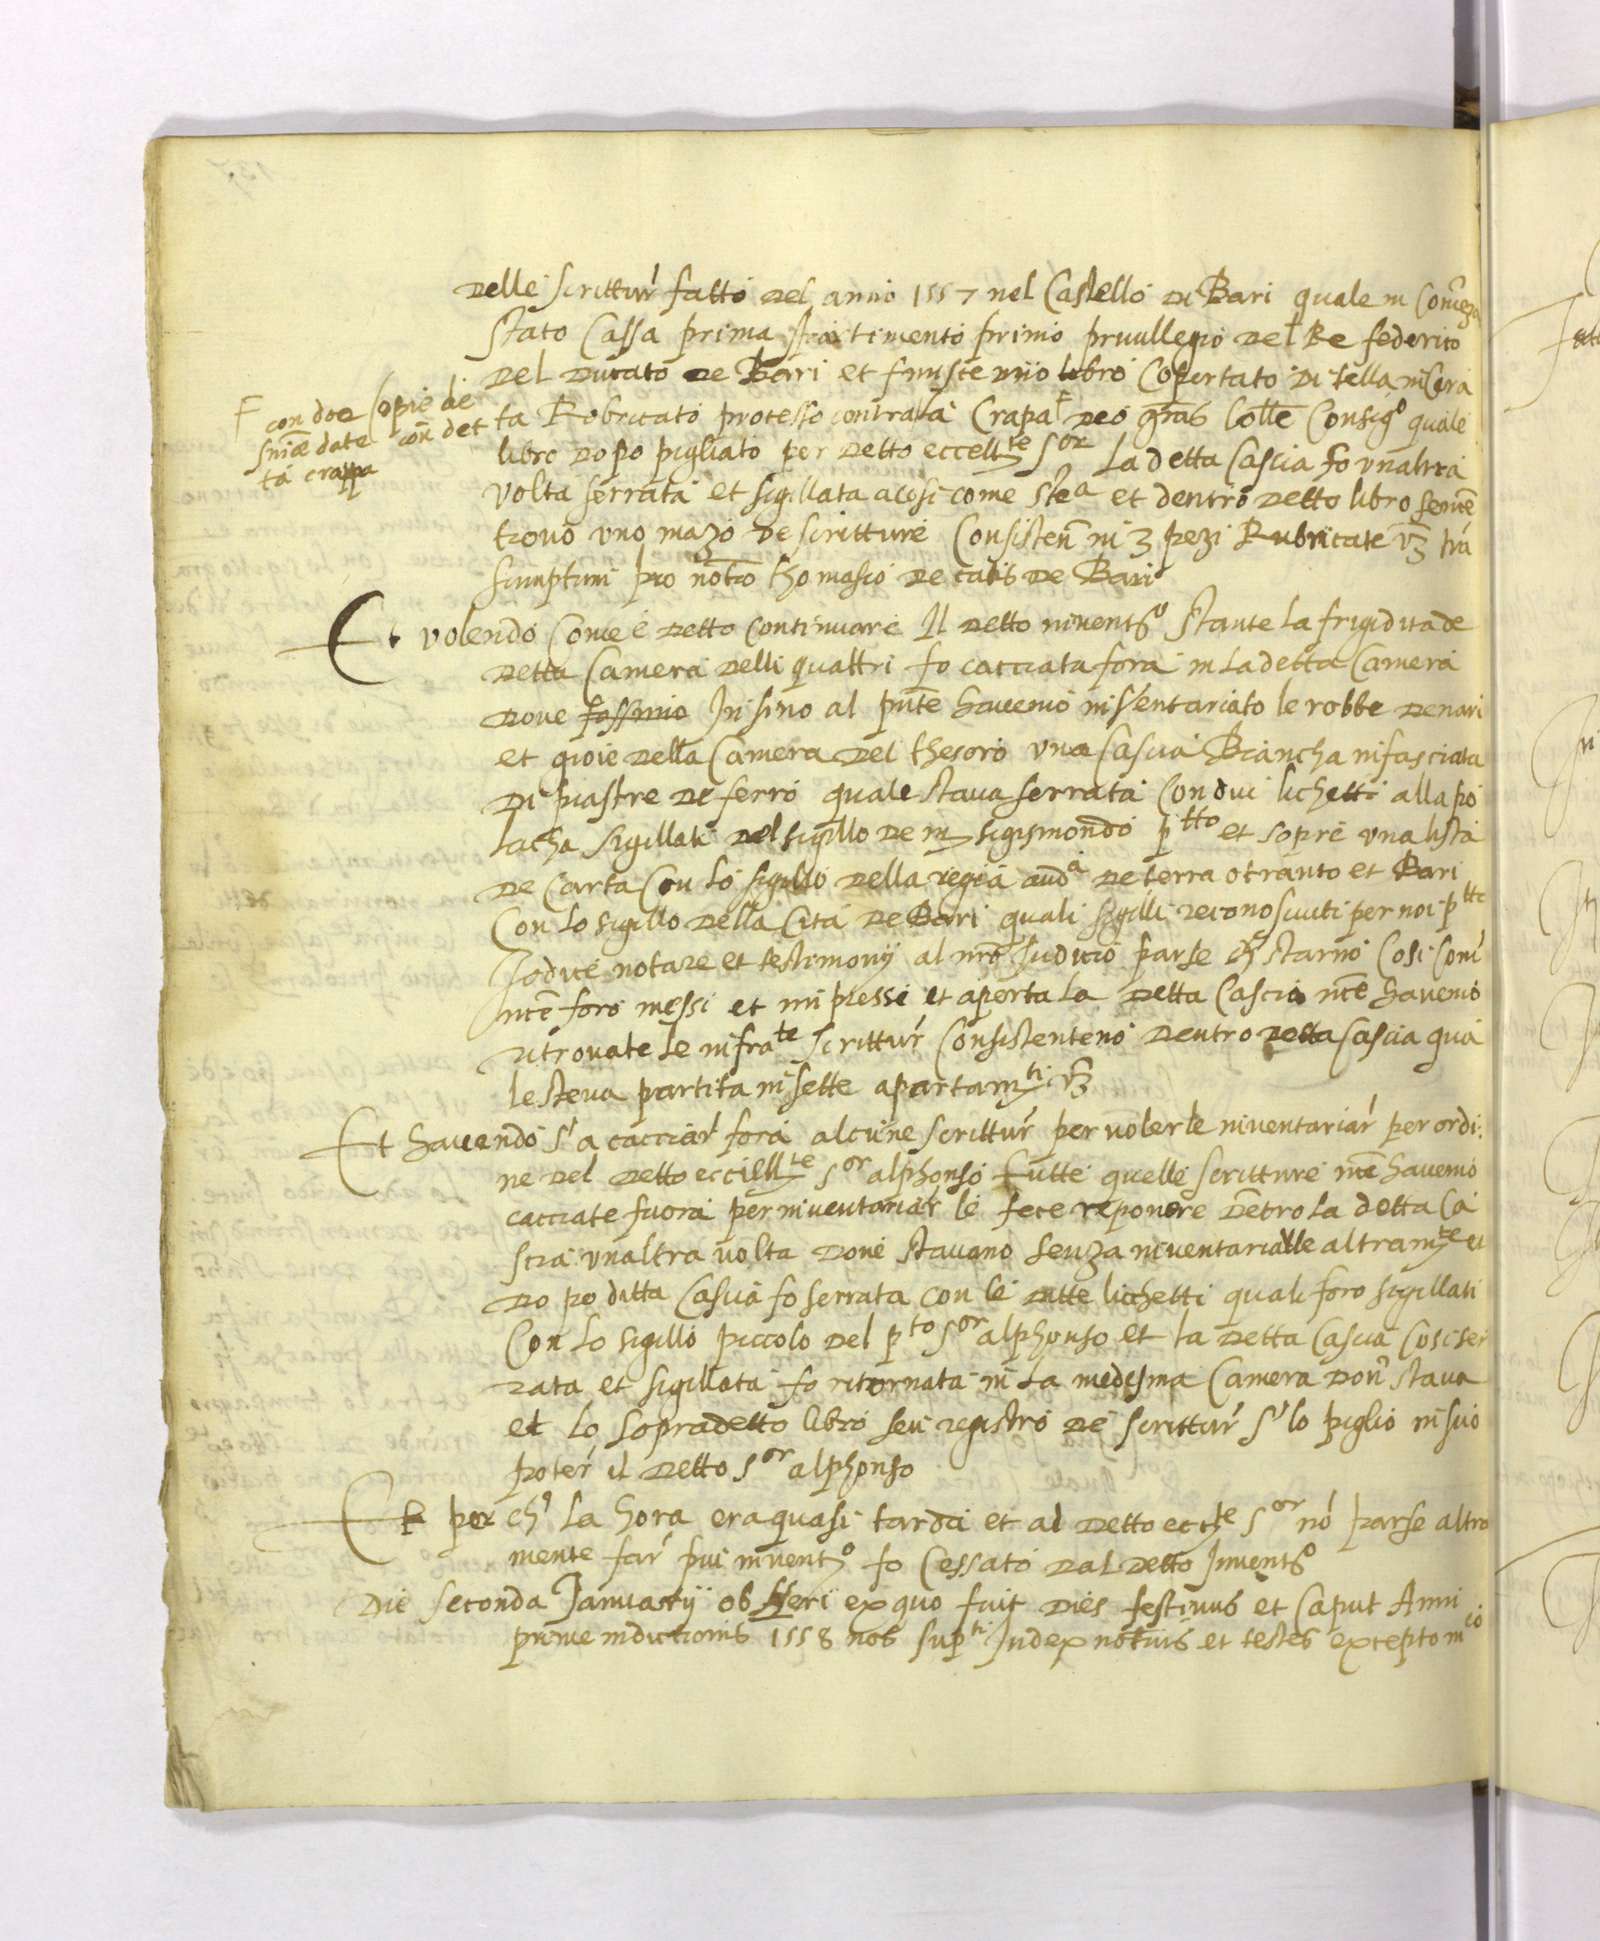 delle scritture fatto del anno 1557 nel Castello di Bari quale in
stato Cassa prima partimento primo privillegio del Re federico
del ducato de Bari et finisce uno libro Copertato di tella incera
ta Robricato processo contra la Crapa Deo gras Consigo quale
F con doe Copie di
snīe date con det
ta crappa
libro dopo pigliato per detto eccellte Sor La detta Cascia fo unaltra
volta serrata et sigillata acosi come stea et dentro detto libro
trovò uno mazo de scritture Consisten in 3 pezi Rubricate vz tra
sumptum pro notro thomasio de catis de Bari
Et volendo Come è detto continuare Il detto inventro stante la frigidita de
detta Camera delli quattri fo cacciata fora in La detta Camera
dove fossimo In sino al pnte havemo inventariato le robbe denari
et gioie della Camera del thesoro una Cascia Biancha infasciata
di piastre de ferro quale stava serrata Con dui lichetti alla po
lacha sigillati del sigillo de m sigismondo ptto et sopre una lista
de Carta Con lo sigillo della regia auda de terra otranto et Bari
Con lo sigillo della Cità de Bari quali sigilli reconosciuti per noi ptti
Iodice notare et testimonij al nro Iudicio parse ch starno Cosi Com
nce foro messi et impressi et aperta la detta Cascia nce havemo
ritrovate le infrate scrittur Consistenteno dentro detta Cascia qua
le steva partita in sette apartamti vz
Et havendo s'a cacciar fora alcune scrittur per volerle inventariar per ordi
ne del detto eccellte Sor alphonso tutte quelle scritture nce havemo
cacciate fuora per inventariar le fece reponere detro la detta Ca
scia unaltra volta dove stavano senza inventariarle altramte et
dopo ditta Cascia fo serrata con le ditte licchetti quali foro sigillati
Con lo sigillo piccolo del pto Sor alphonso et la detta Cascia Cosi ser
rata et sigillata fo ritornata in la medesma Camera don stava
et lo sopradetto libro seu registro de scrittur s' lo piglio in suo
poter il detto Sor alphonso
Et per ch La hora era quasi tarda et al detto eccte Sor nò parse altra
mente far piu inventro fo Cessato dal detto Inventro
Die seconda Ianuarij ob heri ex quo fuit dies festivus et Caput Anni
prime indictionis 1558 nos supti Iudex notarius et testes excepto mco